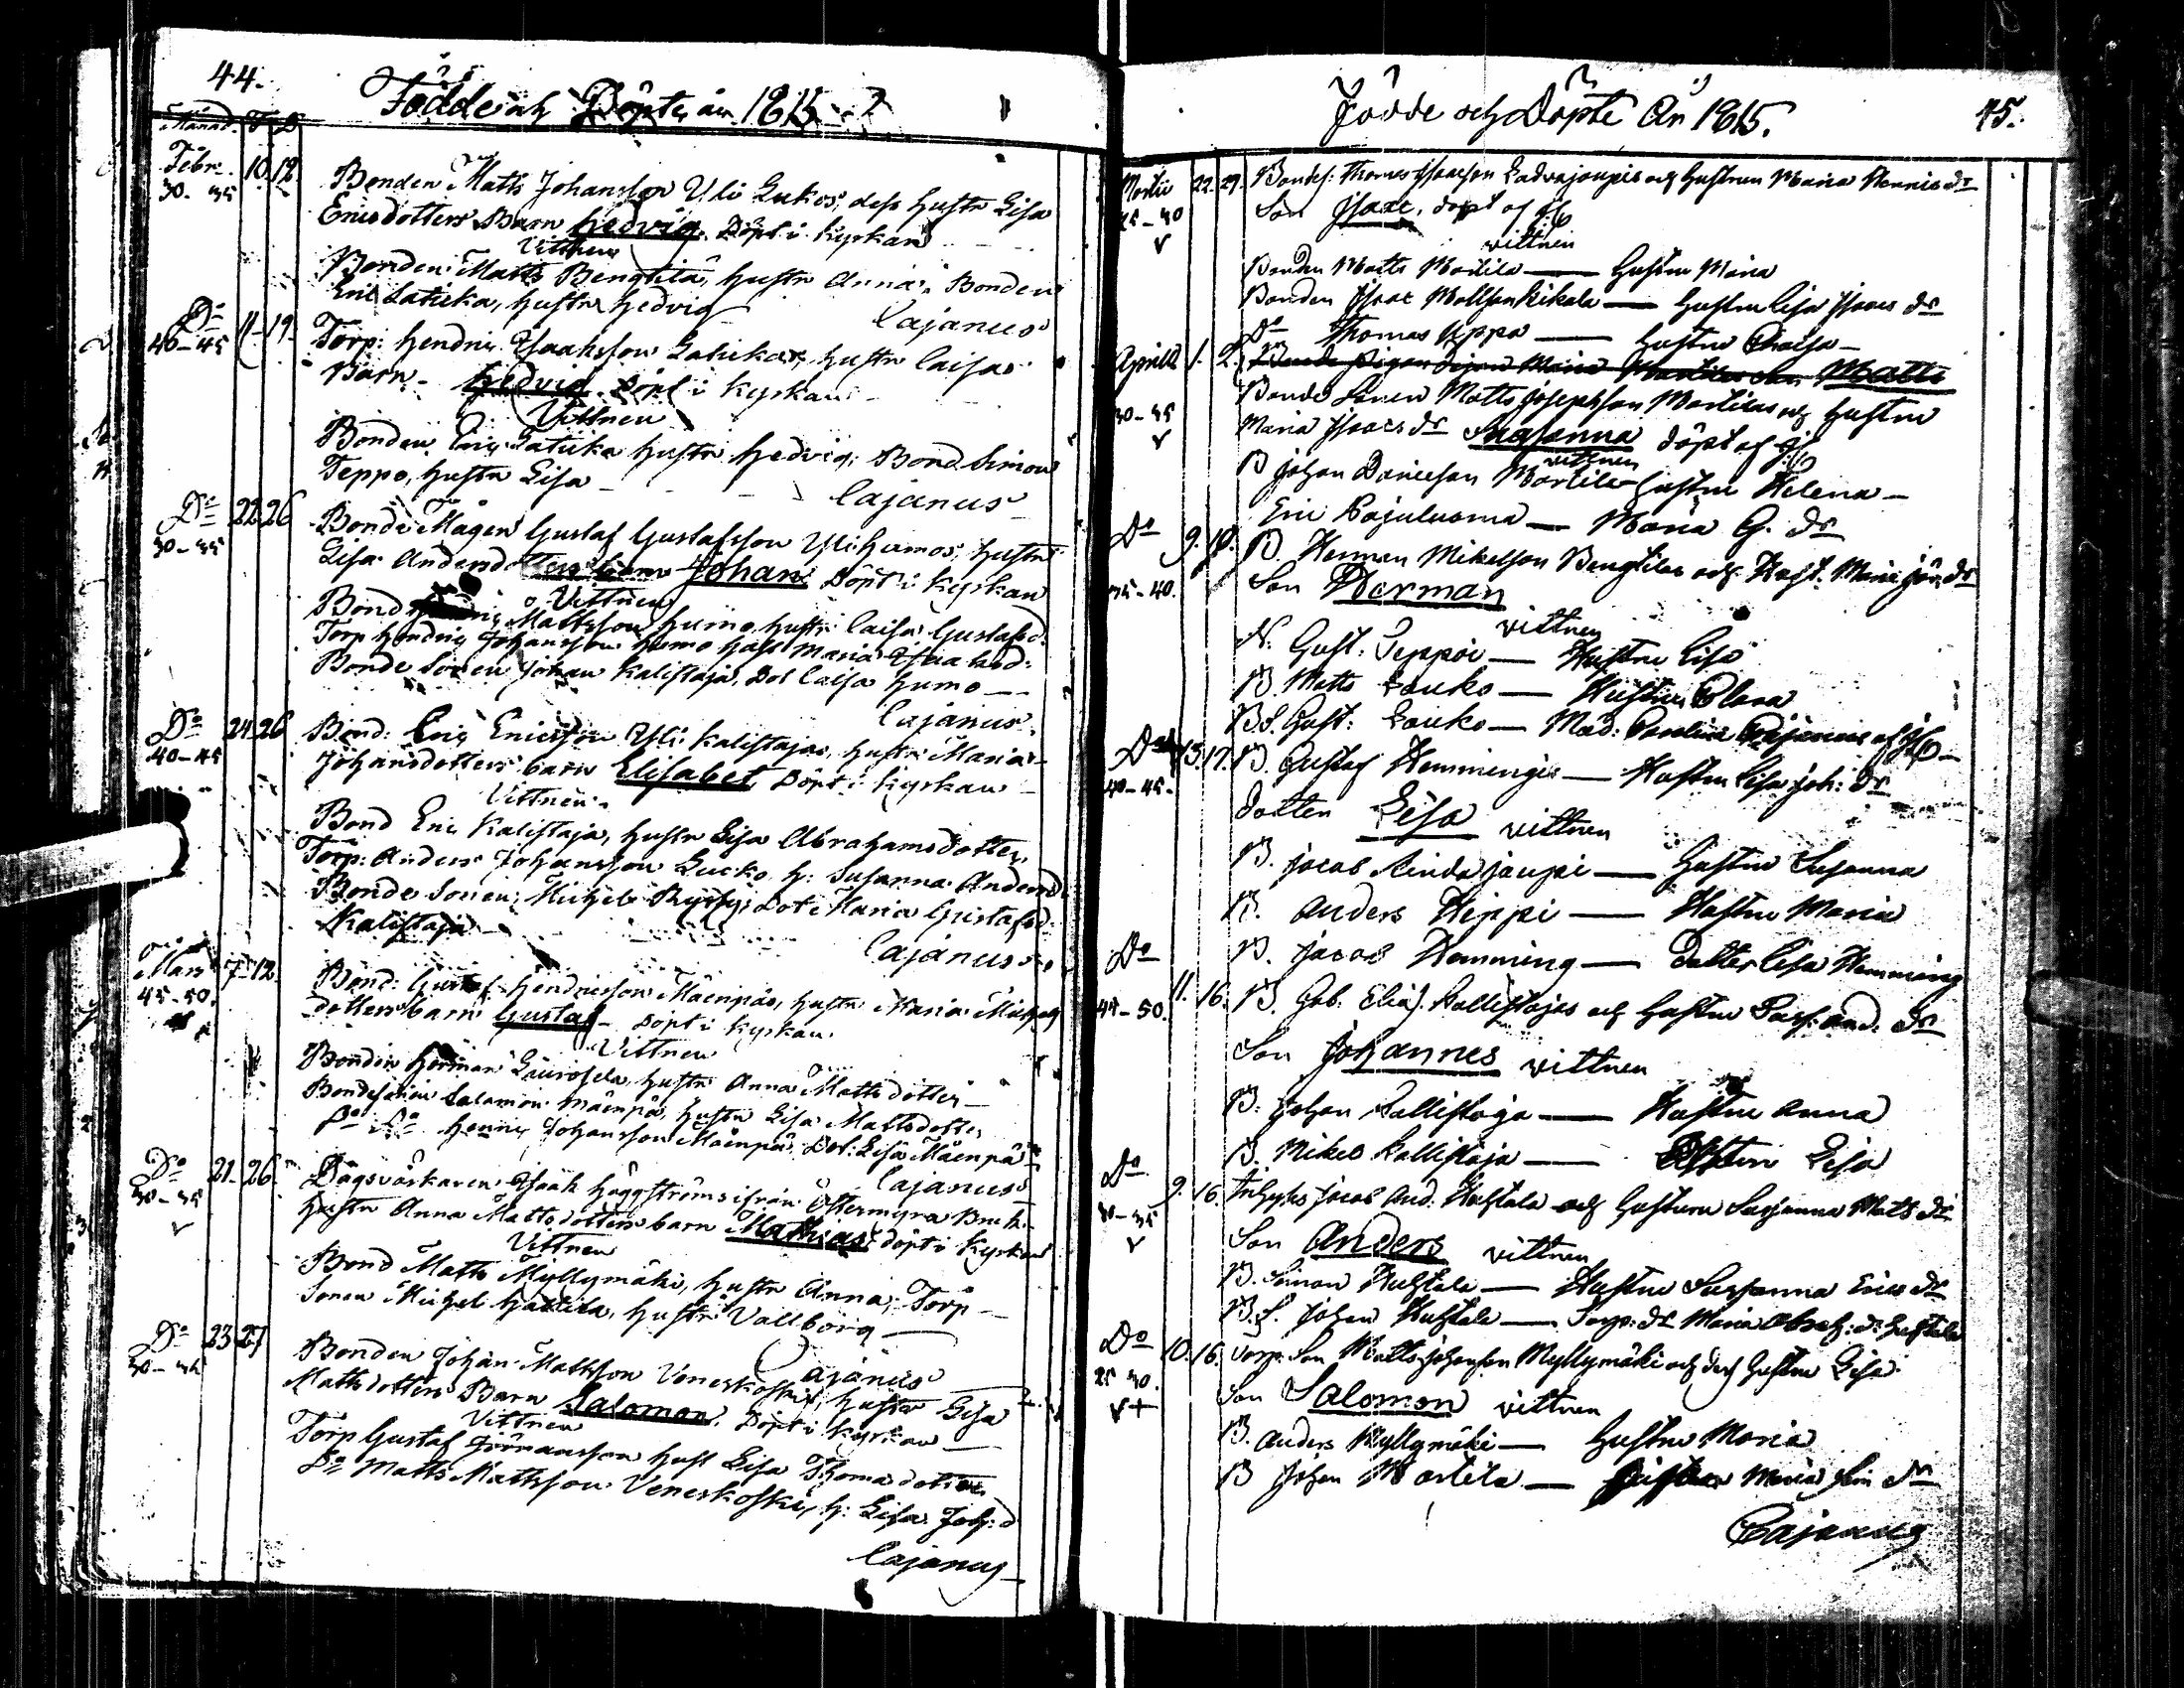 44.
Födde och Döpte år 1815
Månad. F D
Febr. 10. 12. Bonden Matts Johansson Yli Lukos, dess hustr Lisa
30-35 Ericsdotters Barn Hedvig. Döpt i kyrkan
Vittnen
Bonden Matts Bengtila, hustr Anna, Bonden
Eric Laticka, hustr Hedvig
Cajanus
Do 11-19. Torp: Hendric Isaaksson Latickas, hustr Caisas
40-45 Barn - Hedvig. Döpt i kyrkan
Vittnen
Bonden Eric Laticka hustr Hedvig, Bond Simon
Teppo, hustr Lisa
Cajanus
Do 22 26 Bonde Mågen Gustaf Gustafsson Ylihumos, hustr
30-35 Lisa Andersdotters barn Johan Döpt i kyrkan
Vittnen
Bond Mattsson Humo, hustr Caisa Gustafsd.
Torp Hendric Johansson Humo hust Maria Isaaksd:
Bonde Sonen Johan Kalistaja, Dot Caisa Humo
Cajanus
Do 24 26 Bond: Eric Ericsson Yli Kalistajas, hustr Maria
40-45 Johansdotters barn Elisabet, Döpt i kyrkan
Vittnen
Bond Eric Kalistaja, hustr Lisa Abrahamsdotter,
Torp: Anders Johansson Lucko h: Susanna Andersd
Bonde Sonen, Michel Dot Maria Gustafsd:
Kalistaja
Cajanus
Mars 7-12 Bond: Gustaf Hendricsson Mäenpäs, hustr Maria
45-50. dotters barn Gustaf - Döpt i kyrkan.
Vittnen
Bonden Herman Laurosela, hustr Anna Mattsdotter
Bondesonen Salamon Mäenpä, hustr Lisa Mattsdotter
Do Do Henric Johansson Mäenpä, Dot: Lisa Mäenpä
Cajanus
Do 21-26 Dagsvärkaren Isaak Häggströms ifrån Östermyra Bruk
30-35 hustr Anna Mattsdotters barn Mathias, döpt i kyrkan
Vittnen
Bond Matts Myllymäki, hustr Anna, Torp
Sonen Michel Hattila, hustr Vallborg
Cajanus
Do 23 27 Bonden Johan Mattsson Veneskoskis, hustr Lisa
30-35 Mattsdotters Barn Salomon. Döpt i kyrkan
Vittnen
Torp Gustaf Göransson hust Lisa Thomadotter
Do Matts Mattsson Veneskoski, h: Lisa Joh: d
Cajanus
Födde och Döpte År 1815. 45.
Martii 22. 29. Bondes: Thomas Isaacson Ladvajoupis och Hustrun Maria Henricsdr
25-30 Son Isaac, döpt af
vittnen
Bonden Matts Martila — Hustru Maria
Bonden Isaac — Hustru Lisa Isaacs dr
Do Thomas Uppa — Hustru Caisa
Aprill 1. 2. Maria Matts
30-35 Bonde Sonen Matts Josephson Martilas och Hustru
Maria Isaacs dr Susanna döpt af
vittnen
B Johan Danielson Martila Hustru Helena
Eric Rajuluoma — Maria G. dr
Do 9. 10. B. Herman Mikelson Bengtilas och Hust. Maria Jör. dr
35-40. Son Herman
vittnen
N. Gust. Teppoi — Hustru Lisa
B Matts Louko — Hustru Clara
BS. Gust: Louko — Mad: Carolina Cajanus af
Do 13. 17. B. Gustaf Hemmingis — Hustru Lisa Joh: dr
40-45- dotter Lisa vittnen
B. Jacob Rinda joupi — Hustru Susanna
B. Anders Hippi — Hustru Maria
B. Jacob Hemming — dotter Lisa Hemming
Do 11. 16. B. Gab. Elias. Kallistajas och Hustru And. dr
45-50. Son Johannes vittnen
B. Johan Kallistaja — Hustru Anna
B. Mikel Kallistaja — Hustru Lisa
Do 9. 16. Jacob And. Huhtala och Hustrun Susanna Matts dr
30-35 Son Anders vittnen
B. Simon Huhtala — Hustru Susanna Erics dr
B.S. Johan Huhtala — Torp: dr Maria Abrah: dr Huhtala
Do 10. 16. Torp. Son Matts Johanson Myllymäki och dess Hustru Lisa
25 30. Son Salomon vittnen
B. Anders Myllymäki — Hustru Maria
B Johan Martila — Hustru Maria Sim dr
Cajanus